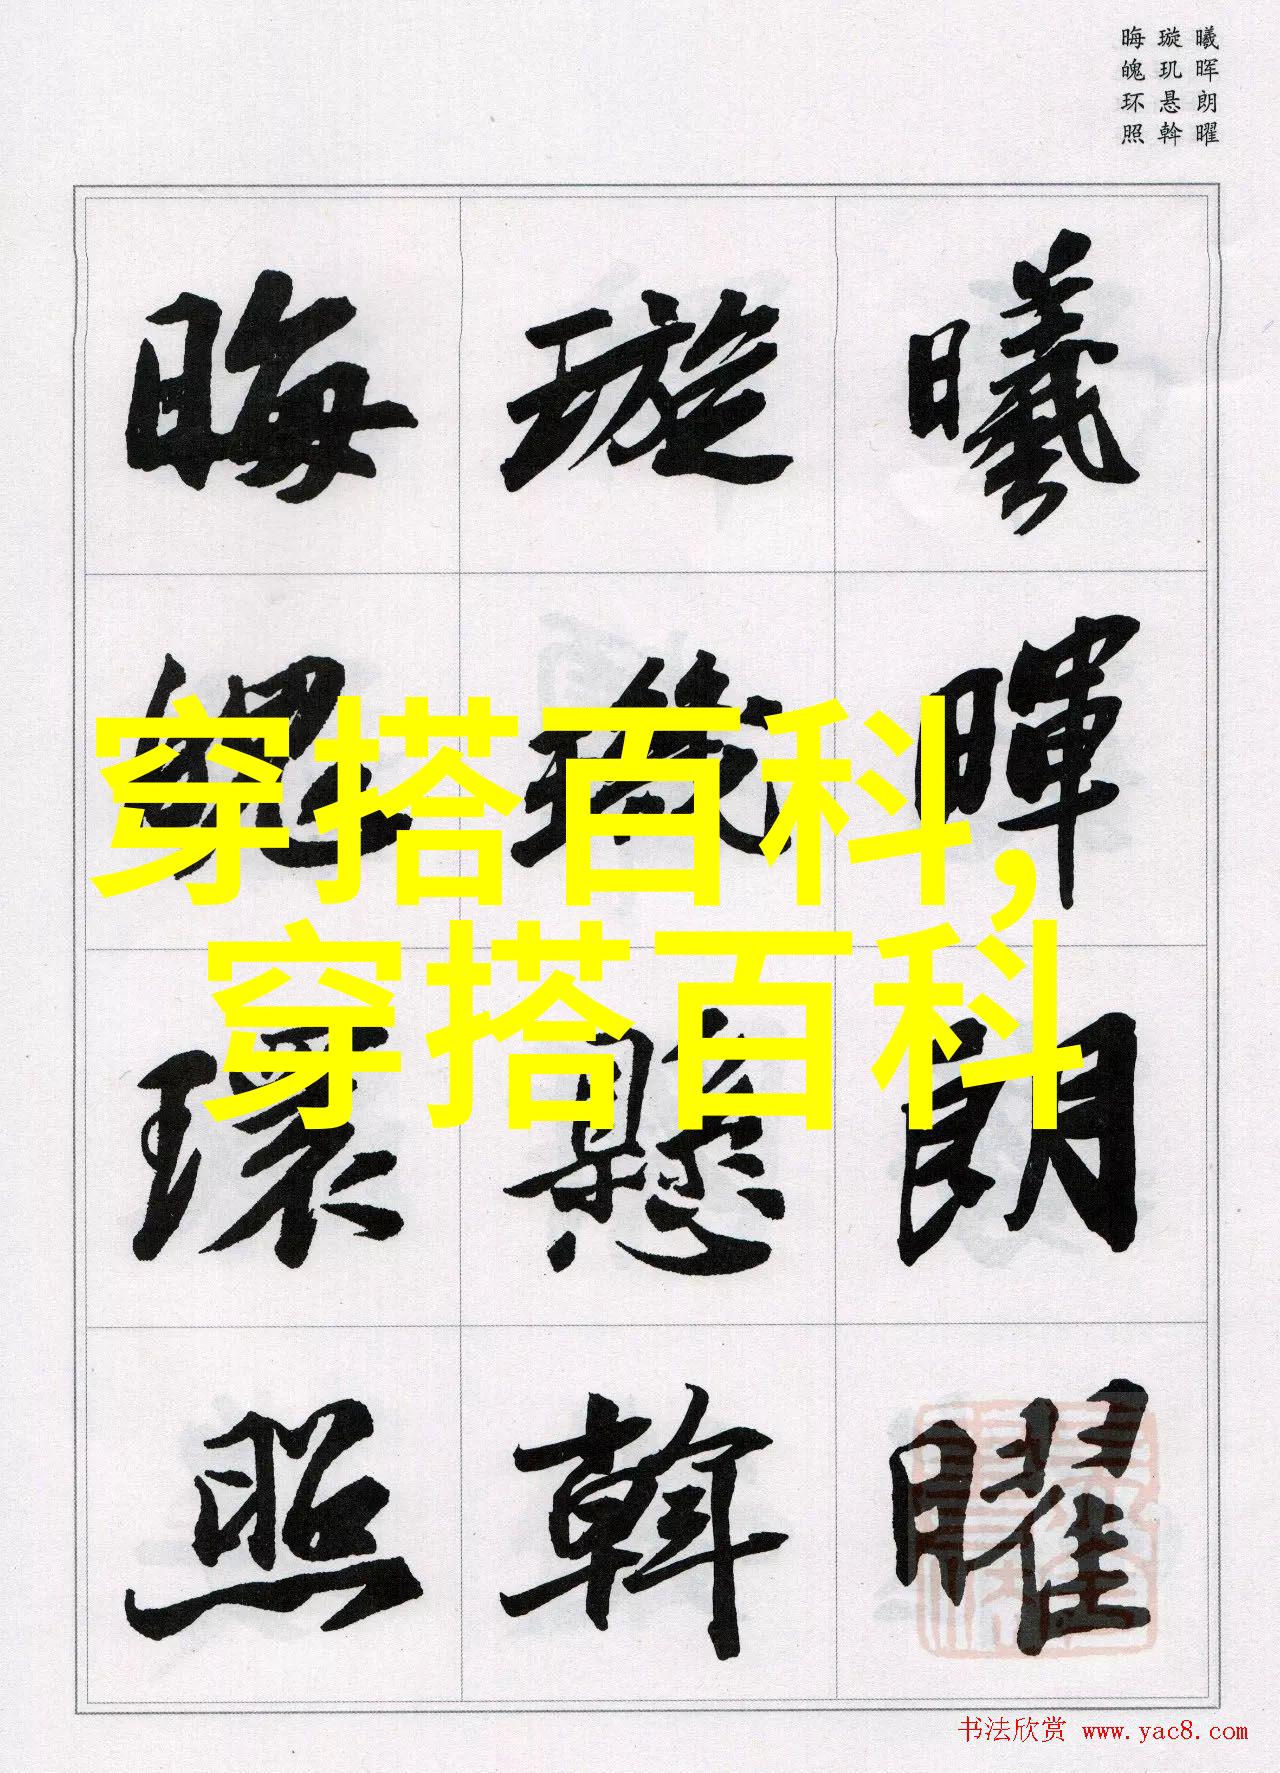 曦晖朗曜
璇玑悬斡
晦魄环照
曦暉朗曜
璇璣懸斡
晦魄環照
穿搭百科,
穿搭百科
书法欣赏 www.yac8.com